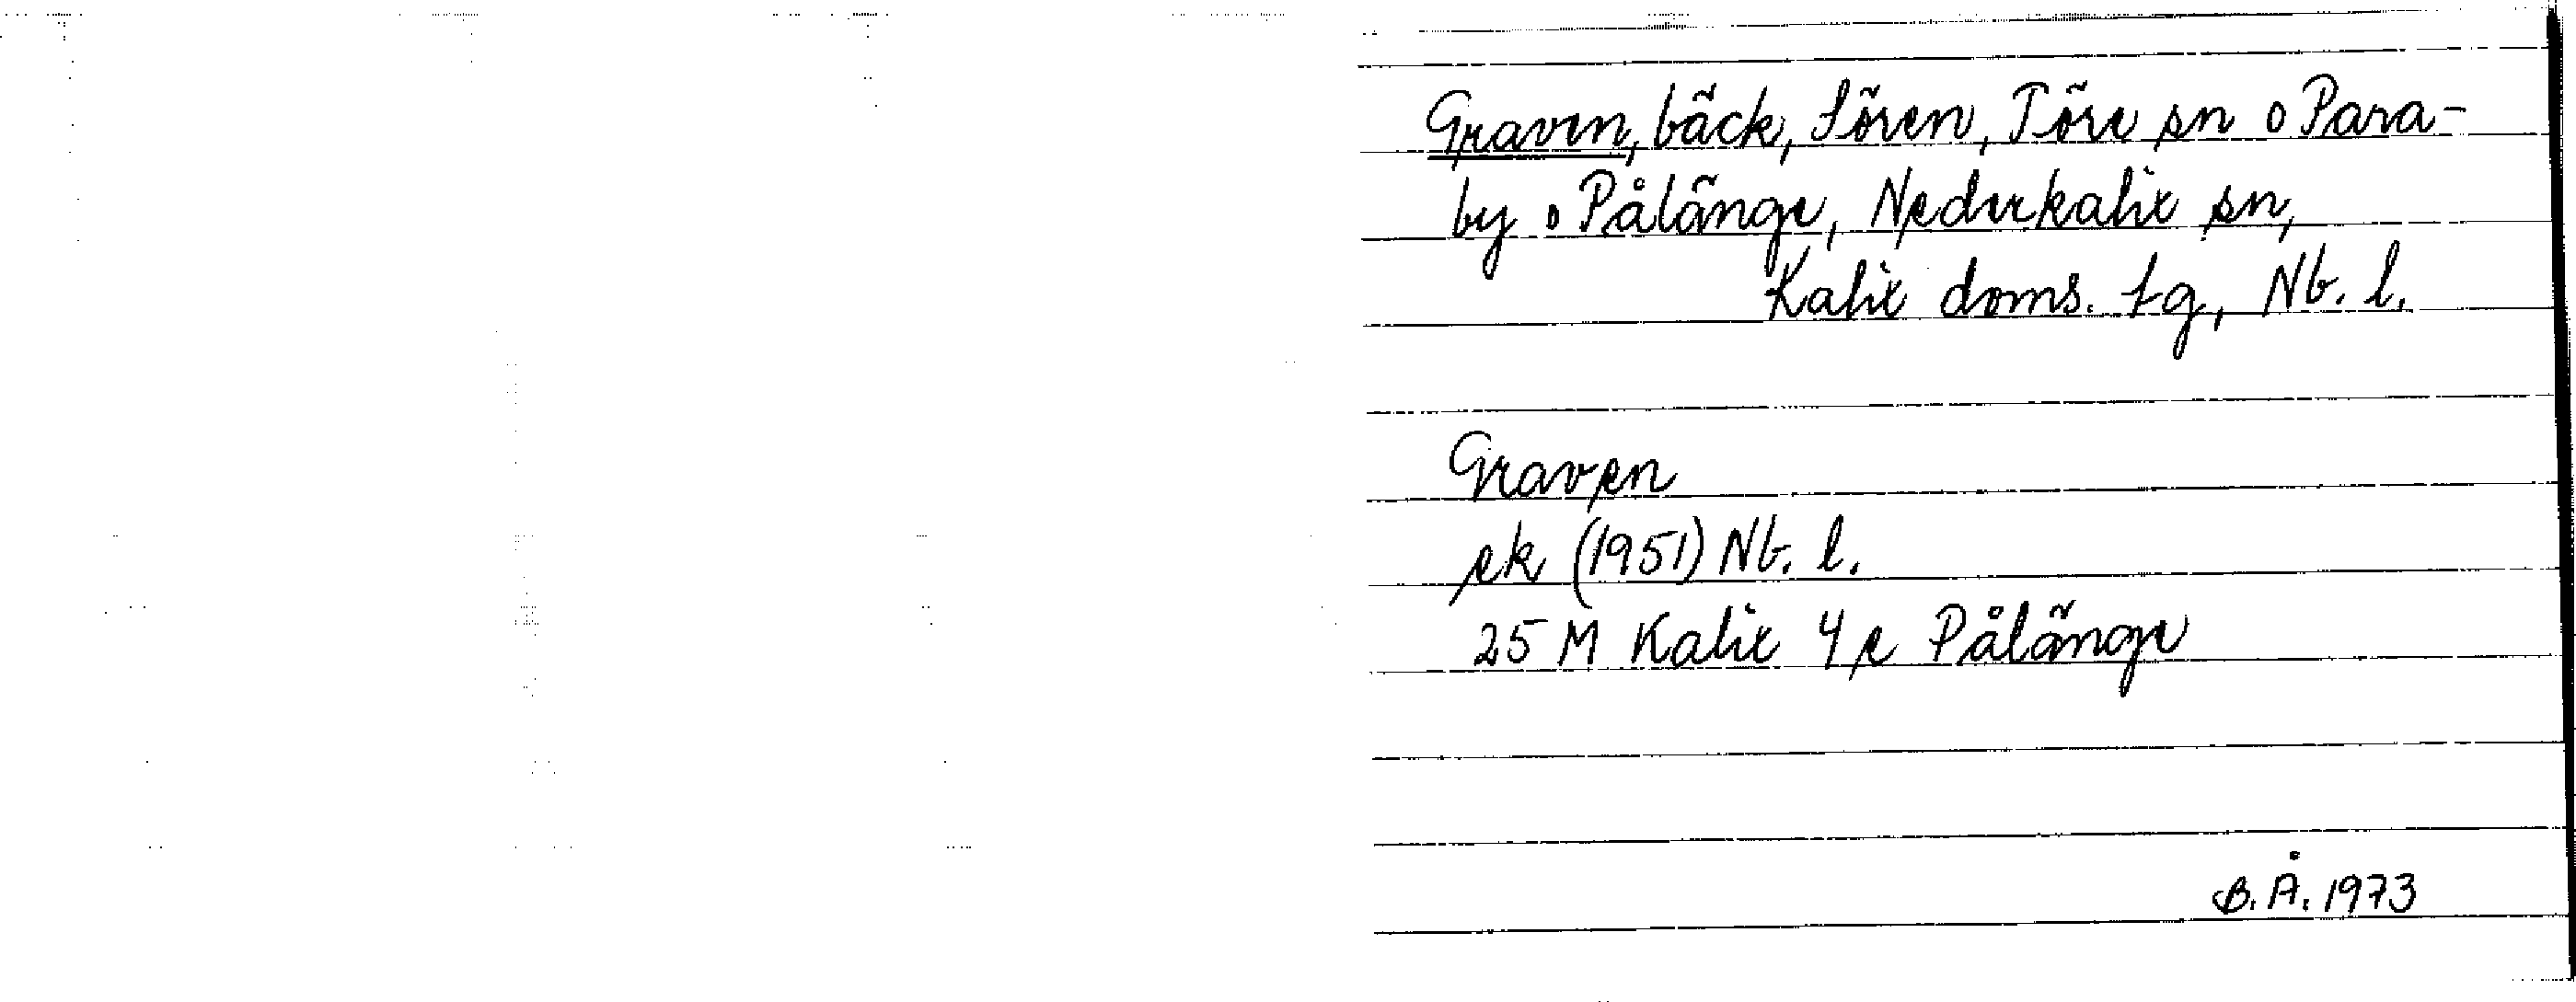 Graven, bäck, Sören, Töre sn o Para-
by o Pålänge, Nederkalix sn,
Kalix doms. tg, Nb. l.
Graven
ek (1951) Nb. l.
25 M Kalix 4 e Pålänge
B. Å. 1973